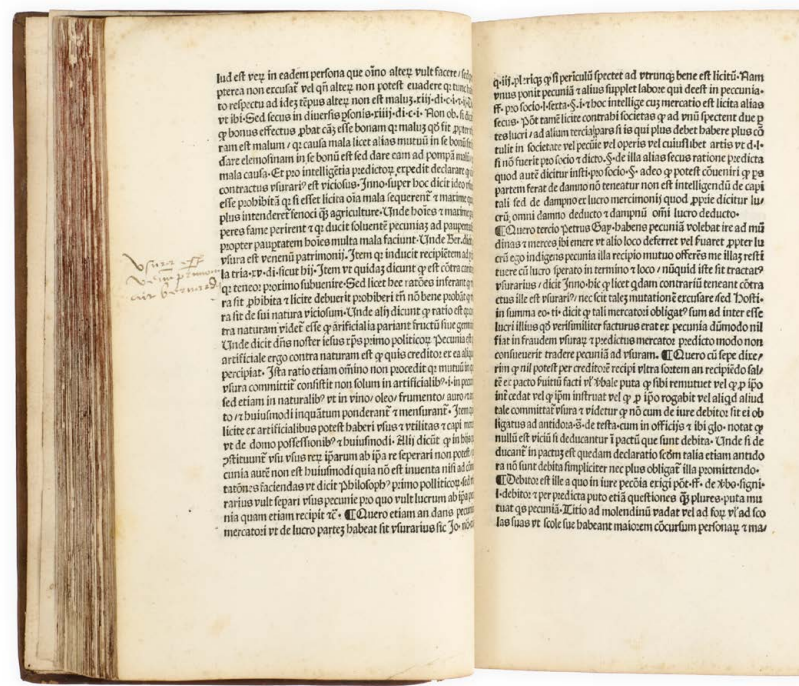 lud est veꝝ in eadem persona que oīno alteꝝ vult facere
pterea non excusat̄ vel qn̄ alteꝝ non potest euadere
to respectu ad ideʒ tēpus alteꝝ non est maluʒ·xiij·di·c·i·
vt ibi·Sed secus in diuersis ꝑsonis·xiiij·di·c·i· Non ob·si
ꝙ bonus effectus ꝓbat cāʒ esse bonam qꝛ maluʒ qd̓ fit
ram est malum / qꝛ causa mala licet alias mutuū in se bonū
dare elemosinam in se bonū est sed dare eam ad pompā
mala causa·Et pro intelligētia predictoꝝ expedit declarare
contractus vsurariꝰ est viciosus·Inno·super hoc dicit ideo
esse prohibitā qꝛ si esset licita oīa mala sequerent̄ ⁊ maxime
plus intenderet̄ fenori ꝙ̄ agriculture·Unde hoīes ⁊ maxime
peres fame perirent ⁊ qꝛ ducit soluentē pecuniaʒ ad
propter pauꝑtatem hoīes multa mala faciunt·Unde Ber·
vsura est venenū patrimonij·Item qꝛ inducit recipiētem
la tria·xv·di·sicut hij·Item vt quidaʒ dicunt ꝙ est cōtra
qꝛ teneor proximo subuenire·Sed licet hee ratōes inferant
ra sit ꝓhibita ⁊ licite debuerit prohiberi tn̄ nō bene probāt
ra sit de sui natura viciosum·Unde alij dicunt ꝙ ratio est
tra naturam videt̄ esse ꝙ artificialia pariant fructū siue
Unde dicit dn̄s noster iesus xp̄s primo politicoꝝ Pecunia
artificiale ergo contra naturam est ꝙ quis creditor ex ea
percipiat· Ista ratio etiam oīno non procedit qꝛ mutuū
vsura committit̄ consistit non solum in artificialibꝰ·i·in
sed etiam in naturalibꝰ vt in vino / oleo / frumento / auro /
to / ⁊ huiusmodi inquātum ponderant̄ ⁊ mensurant̄·
licite ex artificialibus potest haberi vsus ⁊ vtilitas
vt de domo possessionibꝰ ⁊ huiusmodi·Alij dicūt ꝙ in
ꝯstituunt̄ vsu vsus reꝝ ipaꝝ ab ipa re seperari non
cunia autē non est huiusmodi quia nō est inuenta nisi ad
tatōnes faciendas vt dicit Philosophꝰ primo politicoꝝ
rarius vult separi vsus pecunie pro quo vult lucrum ab
nia quam etiam recipit ⁊c̄· ¶Quero etiam an dans
mercatori vt de lucro parteʒ habeat sit vsurarius sic Jo·
vsura est
venenū patrimonij
ait bernardꝰ
q·iij·pleriqꝫ ꝙ si periculū spectet ad vtrunqꝫ bene est licitū·Nam
vnus ponit pecuniā ⁊ alius supplet laboreʒ qui deest in peccunia·
ff·pro socio·l·sexta·§·i·⁊ hoc intellige cuʒ mercatio est licita alias
secus·Pōt tamē licite contrahi societas ꝙ ad vnū spectent due ꝑ
tes lucri / ad alium tercia pars si is qui plus debet habere plus cō
tulit in societate vel pecūie vel operis vel cuiuslibet artis vt d·l·
si nō fuerit pro socio ⁊ dicto·§·de illa alias secus ratione predicta
quod autē dicitur insti·pro socio·§·adeo ꝙ potest cōueniri ꝙ ꝑs
partem ferat de damno nō teneatur non est intelligendū de capi
tali sed de dampno ex lucro mercimonij quod ꝓprie dicitur lu
crū omni damno deducto ⁊ dampnū omī lucro deducto·
¶Quero tercio Petrus Gay·habens pecuniā volebat ire ad nū
dinas ⁊ merces ibi emere vt alio loco deferret vel ẜuaret ꝓpter lu
crū ego indigens pecunia illa recipio mutuo offerēs me illaʒ resti
tuere cū lucro sperato in termino ⁊ loco / nūquid iste sit tractatꝰ
vsurarius / dicit Inno·hic ꝙ licet qdam contrariū teneant cōtra
ctus ille est vsurariꝰ / nec scit taleʒ mutationē excusare sed Hosti·
in summa eo·ti·dicit ꝙ tali mercatori obligatꝰ sum ad inter esse
lucri illius qd̓ verisimiliter facturus erat ex pecunia dūmodo nil
fiat in fraudem vsuraꝝ ⁊ predictus mercator predicto modo non
consueuerit tradere pecuniā ad vsuram· ¶Quero cū sepe dixe/
rim ꝙ nil potest per creditorē recipi vltra sortem an recipiēdo sal/
tē ex pacto ẜuitū facti vl̓ ꝟbale puta ꝙ sibi remutuet vel ꝙ ꝓ ipo
int̄cedat vel ꝙ ipm̄ instruat vel ꝙ ꝓ ipo rogabit vel aliqd aliud
tale committat̄ vsura ⁊ videtur ꝙ nō cum de iure debitor sit ei ob
ligatus ad antidora·ff·de testa·cum in officijs ⁊ ibi glo·notat ꝙ
nullū est viciū si deducantur ī pactū que sunt debita·Unde si de
ducant̄ in pactuʒ est quedam declaratio scd̓m talia etiam antido
ra nō sunt debita simpliciter nec plus obligat̄ illa promittendo·
¶Debitor est ille a quo in iure pecūia exigi pōt·ff·de ꝟbo·signi·
l·debitor ⁊ per predicta puto etiā questiones ꝙ̄ plures·puta mu
tuat qs pecuniā·Titio ad molendinū vadat vel ad foꝝ vl̓ ad sco
las suas vt scole sue habeant maiorem cōcursum personaꝝ ⁊ ma/